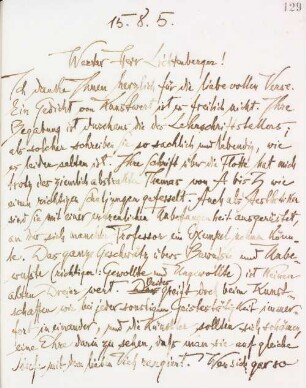 129
15. 8. 5.
Werter Herr Lichtenberger!
Ich danke Ihnen herzlich für die liebevollen Verse.
Ein Gedicht von Kunstwert ist es freilich nicht. Ihre
Begabung ist durchaus die des Lehrschriftstellers;
als solcher schreiben Sie so sachlich und lebendig, wie
es leider selten ist. Ihre Schrift über die Flotte hat mich
trotz des ziemlich abstrakten Themas von A bis Z wie
einen richtigen gefesselt. Auch als Aesthetiker
sind Sie mit einer Unbefangenheit ausgerüstet,
an der sich mancher Professor ein Exempel nehmen könn-
te. Das ganze Geschwätz über Bewußte und Unbe-
wußte (richtiger: Gewollte und Ungewollte) ist keinen
alten Dreier wert. Beides greift beim Kunst-
schaffen wie bei jeder sonstigen Geistestätigkeit immer-
fort in einander, und die Künstler sollten sich
eine Ehre darin zu sehen, daß man sie auf gleiche
Stufe mit dem lieben Vieh rangiert.